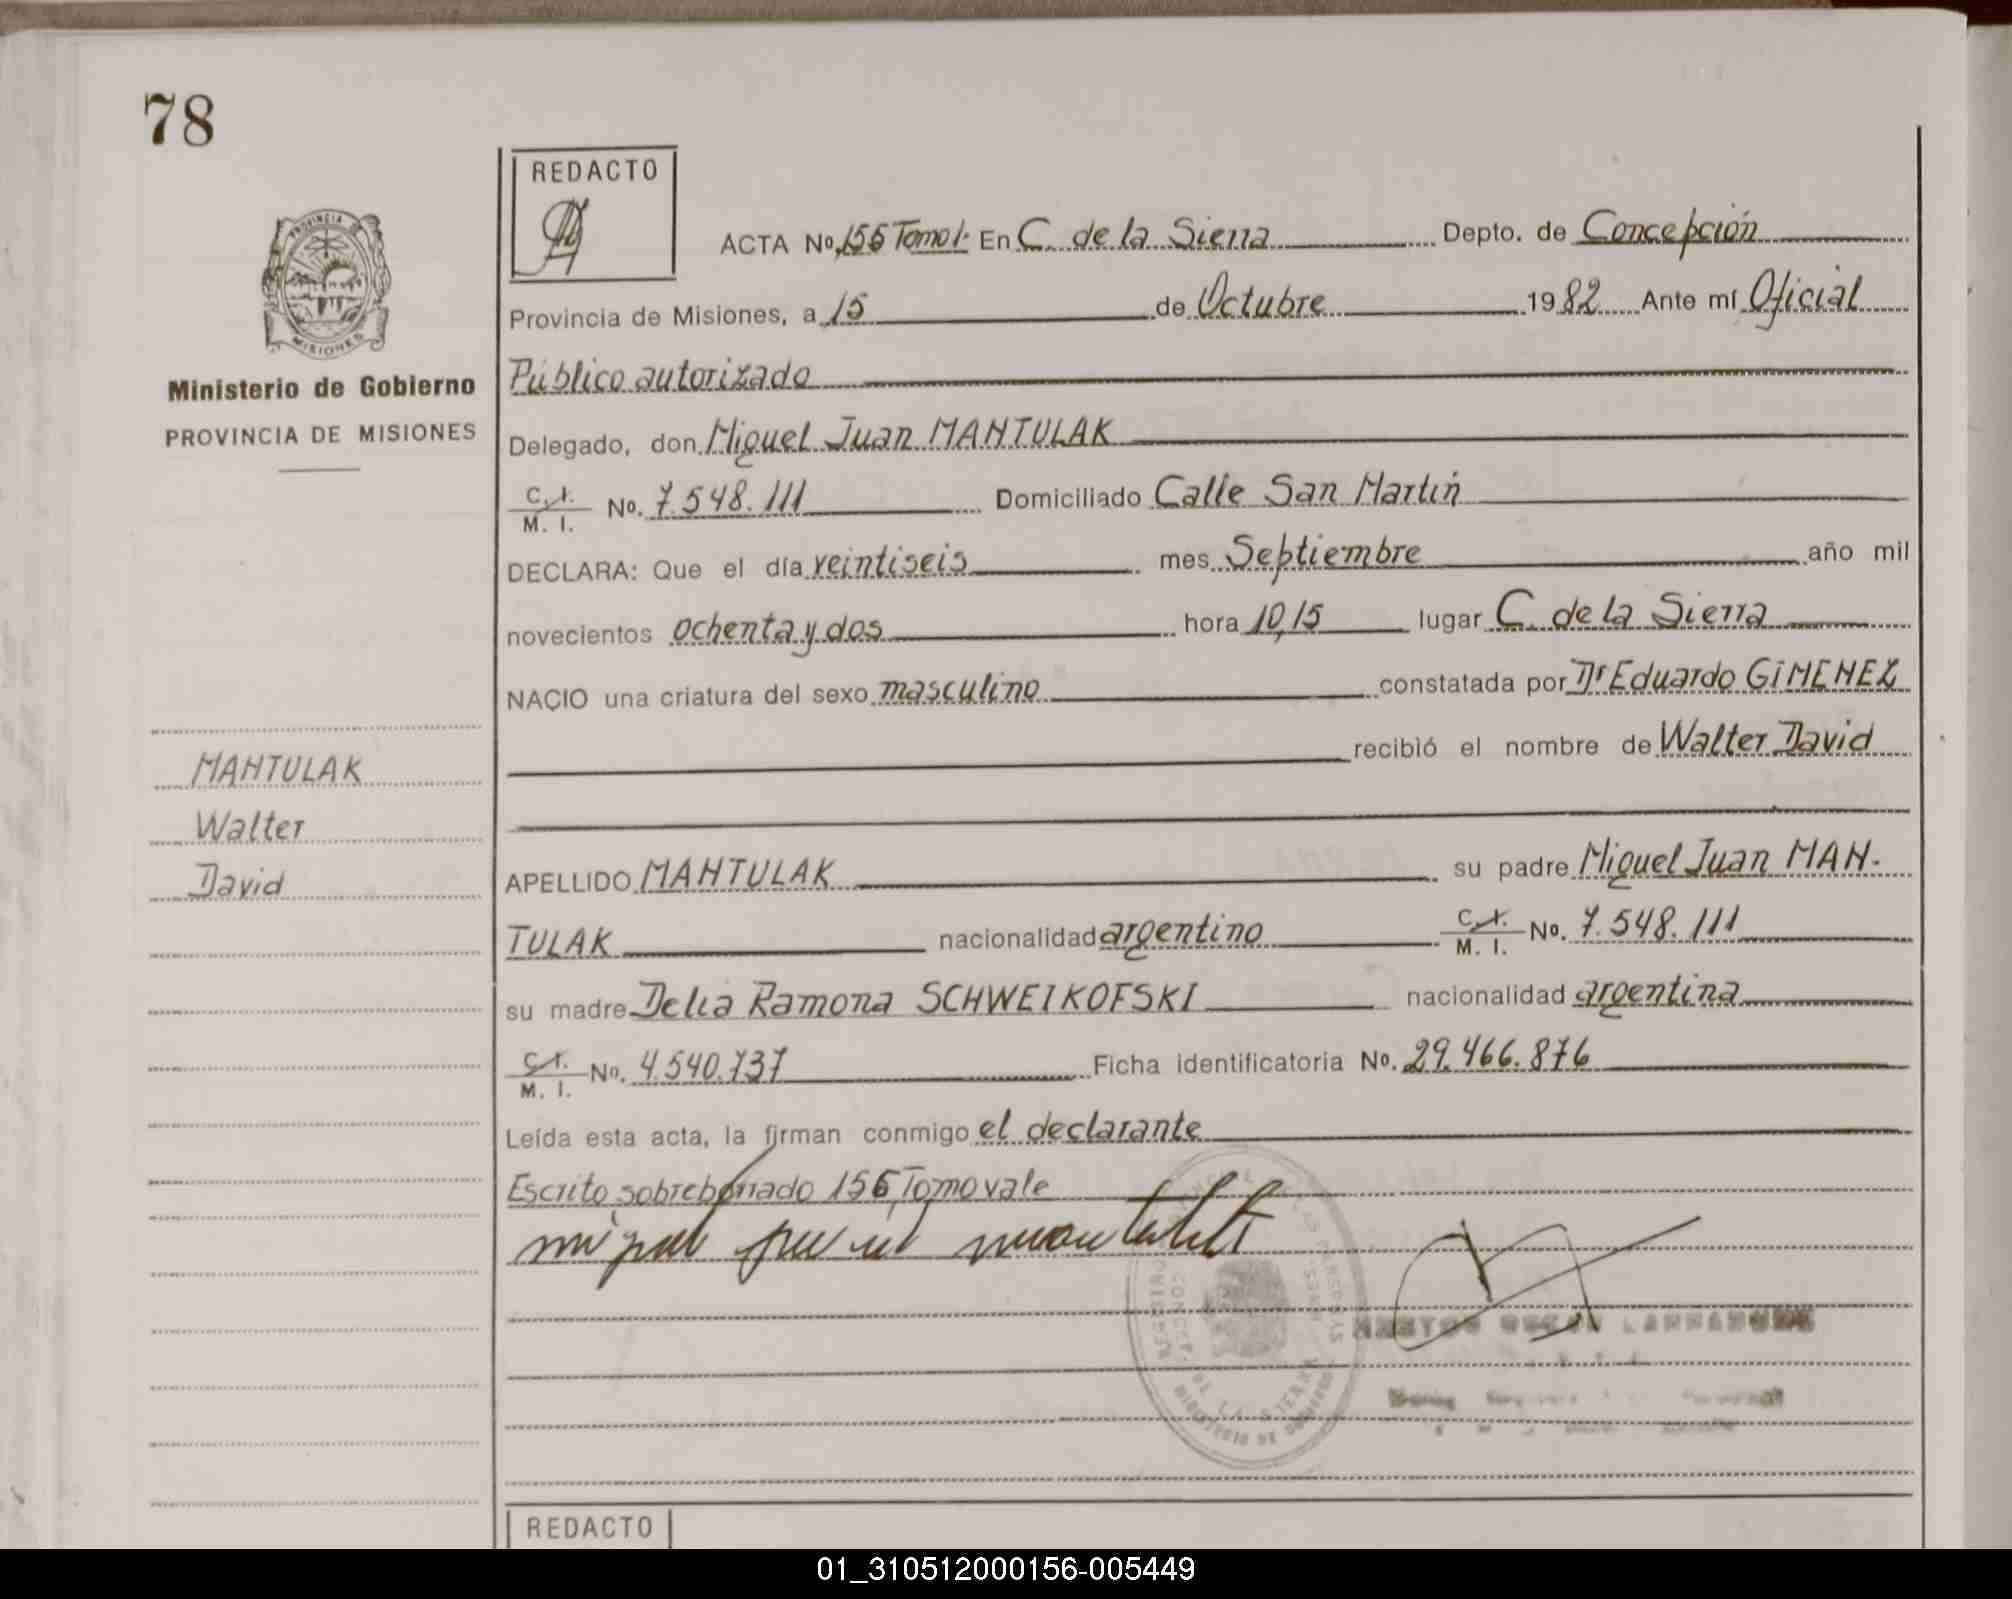 78
REDACTO
PROVINCIA DE
MISIONES
Ministerio de Gobierno
PROVINCIA DE MISIONES
ACTA No. 156 Tomo I. En C. de la Sierra Depto. de Concepción
Provincia de Misiones, a 15 de Octubre 1982 Ante mí Oficial
Público autorizado
Delegado, don Miguel Juan MANTULAK
C. I.
M. I. No. 7.548.111 Domiciliado Calle San Martín
DECLARA: Que el día veintiseis mes Septiembre año mil
novecientos ochenta y dos hora 10,15 lugar C. de la Sierra
NACIO una criatura del sexo masculino constatada por Dr Eduardo GIMENEZ
recibió el nombre de Walter David
MANTULAK
Walter
David
APELLIDO MANTULAK su padre Miguel Juan MAN-
TULAK nacionalidad argentino C. I.
M. I. No. 7.548.111
su madre Delia Ramona SCHWEIKOFSKI nacionalidad argentina
C. I.
M. I. No. 4.540.737 Ficha identificatoria No. 29.466.876
Leída esta acta, la firman conmigo el declarante
Escrito sobreborrado 156, Tomo vale
REGISTRO DE LAS PERSONAS
DE LA SIERRA
MINISTERIO DE GOBIERNO
REDACTO
01_310512000156-005449